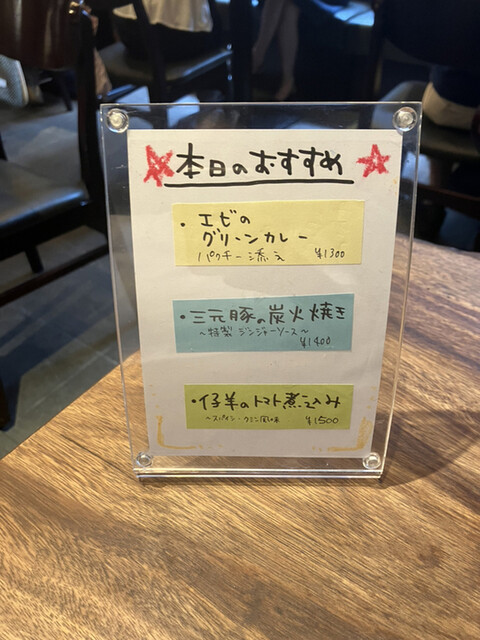 本日のおすすめ
・エビの
グリーンカレー
パクチー添え ¥1300
・三元豚の炭火焼き
〜特製 ジンジャーソース〜
¥1400
・仔羊のトマト煮込み
〜スパイシークミン風味 ¥1500